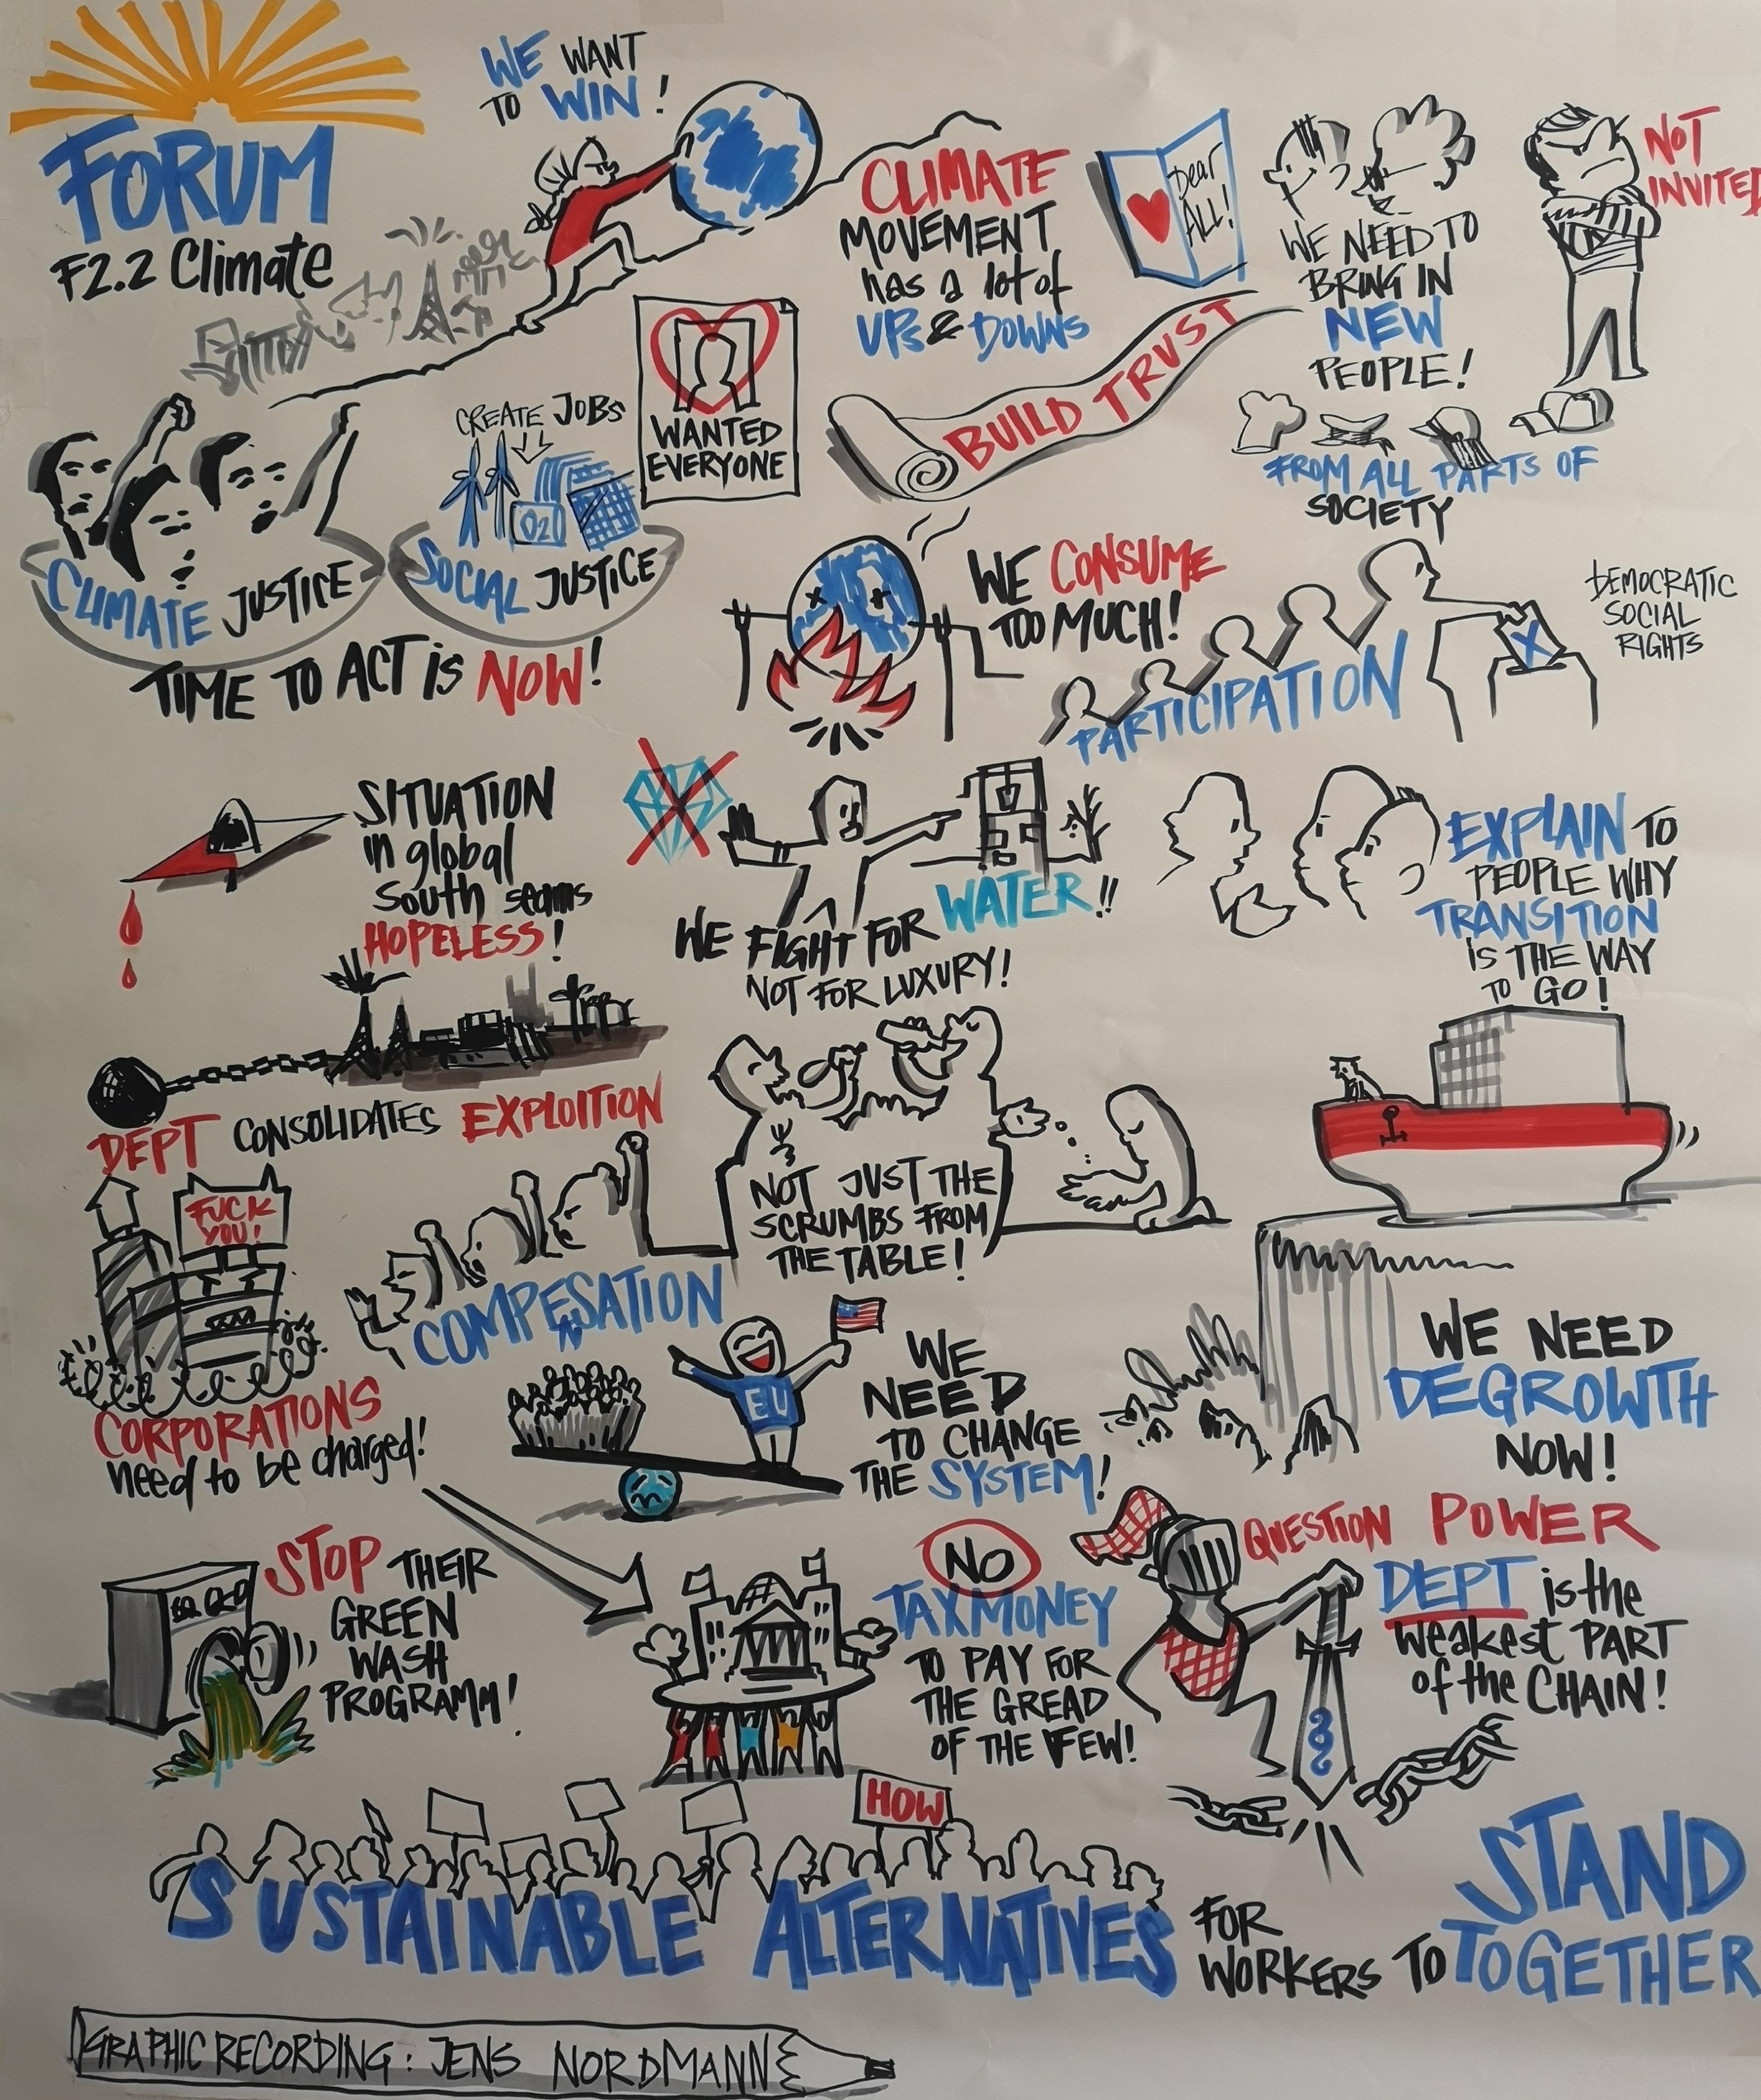 WE WANT
TO WIN!
FORUM
F2.2 Climate
CLIMATE
MOVEMENT
has a lot of
UPs & DOWNS
Dear
ALL!
WE NEED TO
BRING IN
NEW
PEOPLE!
FROM ALL PARTS OF
SOCIETY
NOT
INVITED
BUILD TRUST
WANTED
EVERYONE
CREATE JOBS
O2
CLIMATE JUSTICE
SOCIAL JUSTICE
TIME TO ACT is NOW!
WE CONSUME
TOO MUCH!
PARTICIPATION
X
DEMOCRATIC
SOCIAL
RIGHTS
SITUATION
in global
South seams
HOPELESS!
WE FIGHT FOR WATER!!
NOT FOR LUXURY!
EXPLAIN TO
PEOPLE WHY
TRANSITION
is THE WAY
TO GO!
DEPT CONSOLIDATES EXPLOITION
FUCK
YOU!
CORPORATIONS
need to be charged!
COMPENSATION
NOT JUST THE
SCRUMBS FROM
THE TABLE!
EU
WE
NEED
TO CHANGE
THE SYSTEM!
WE NEED
DEGROWTH
NOW!
STOP THEIR
GREEN
WASH
PROGRAMM!
NO
TAXMONEY
TO PAY FOR
THE GREAD
OF THE FEW!
QUESTION POWER
DEPT is the
weakest PART
of the CHAIN!
§
HOW
SUSTAINABLE ALTERNATIVES FOR
WORKERS TO STAND
TOGETHER
GRAPHIC RECORDING: JENS NORDMANN